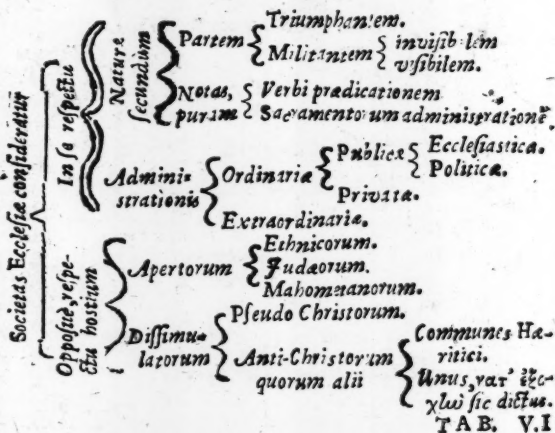 Societas Eccleſiæ conſideratur
In ſe reſpectu
Naturæ
ſecundum
Partem
Triumphantem.
Militantem
inviſibilem
viſibilem.
Notas,
puram
Verbi prædicationem
Sacramentorum adminiſtrationē.
Admini-
ſtrationis
Ordinariæ
Publicæ
Eccleſiaſticæ.
Politicæ.
Privatæ.
Extraordinariæ.
Oppoſitè, reſpe-
ctu hoſtium
Apertorum
Ethnicorum.
Judæorum.
Mahometanorum.
Diſſimu-
latorum
Pſeudo Chriſtorum.
Anti-Chriſtorum
quorum alii
Communes Hæ-
ritici.
Unus, κατ’ ἐξο-
χὴν ſic dictus.
TAB. VI